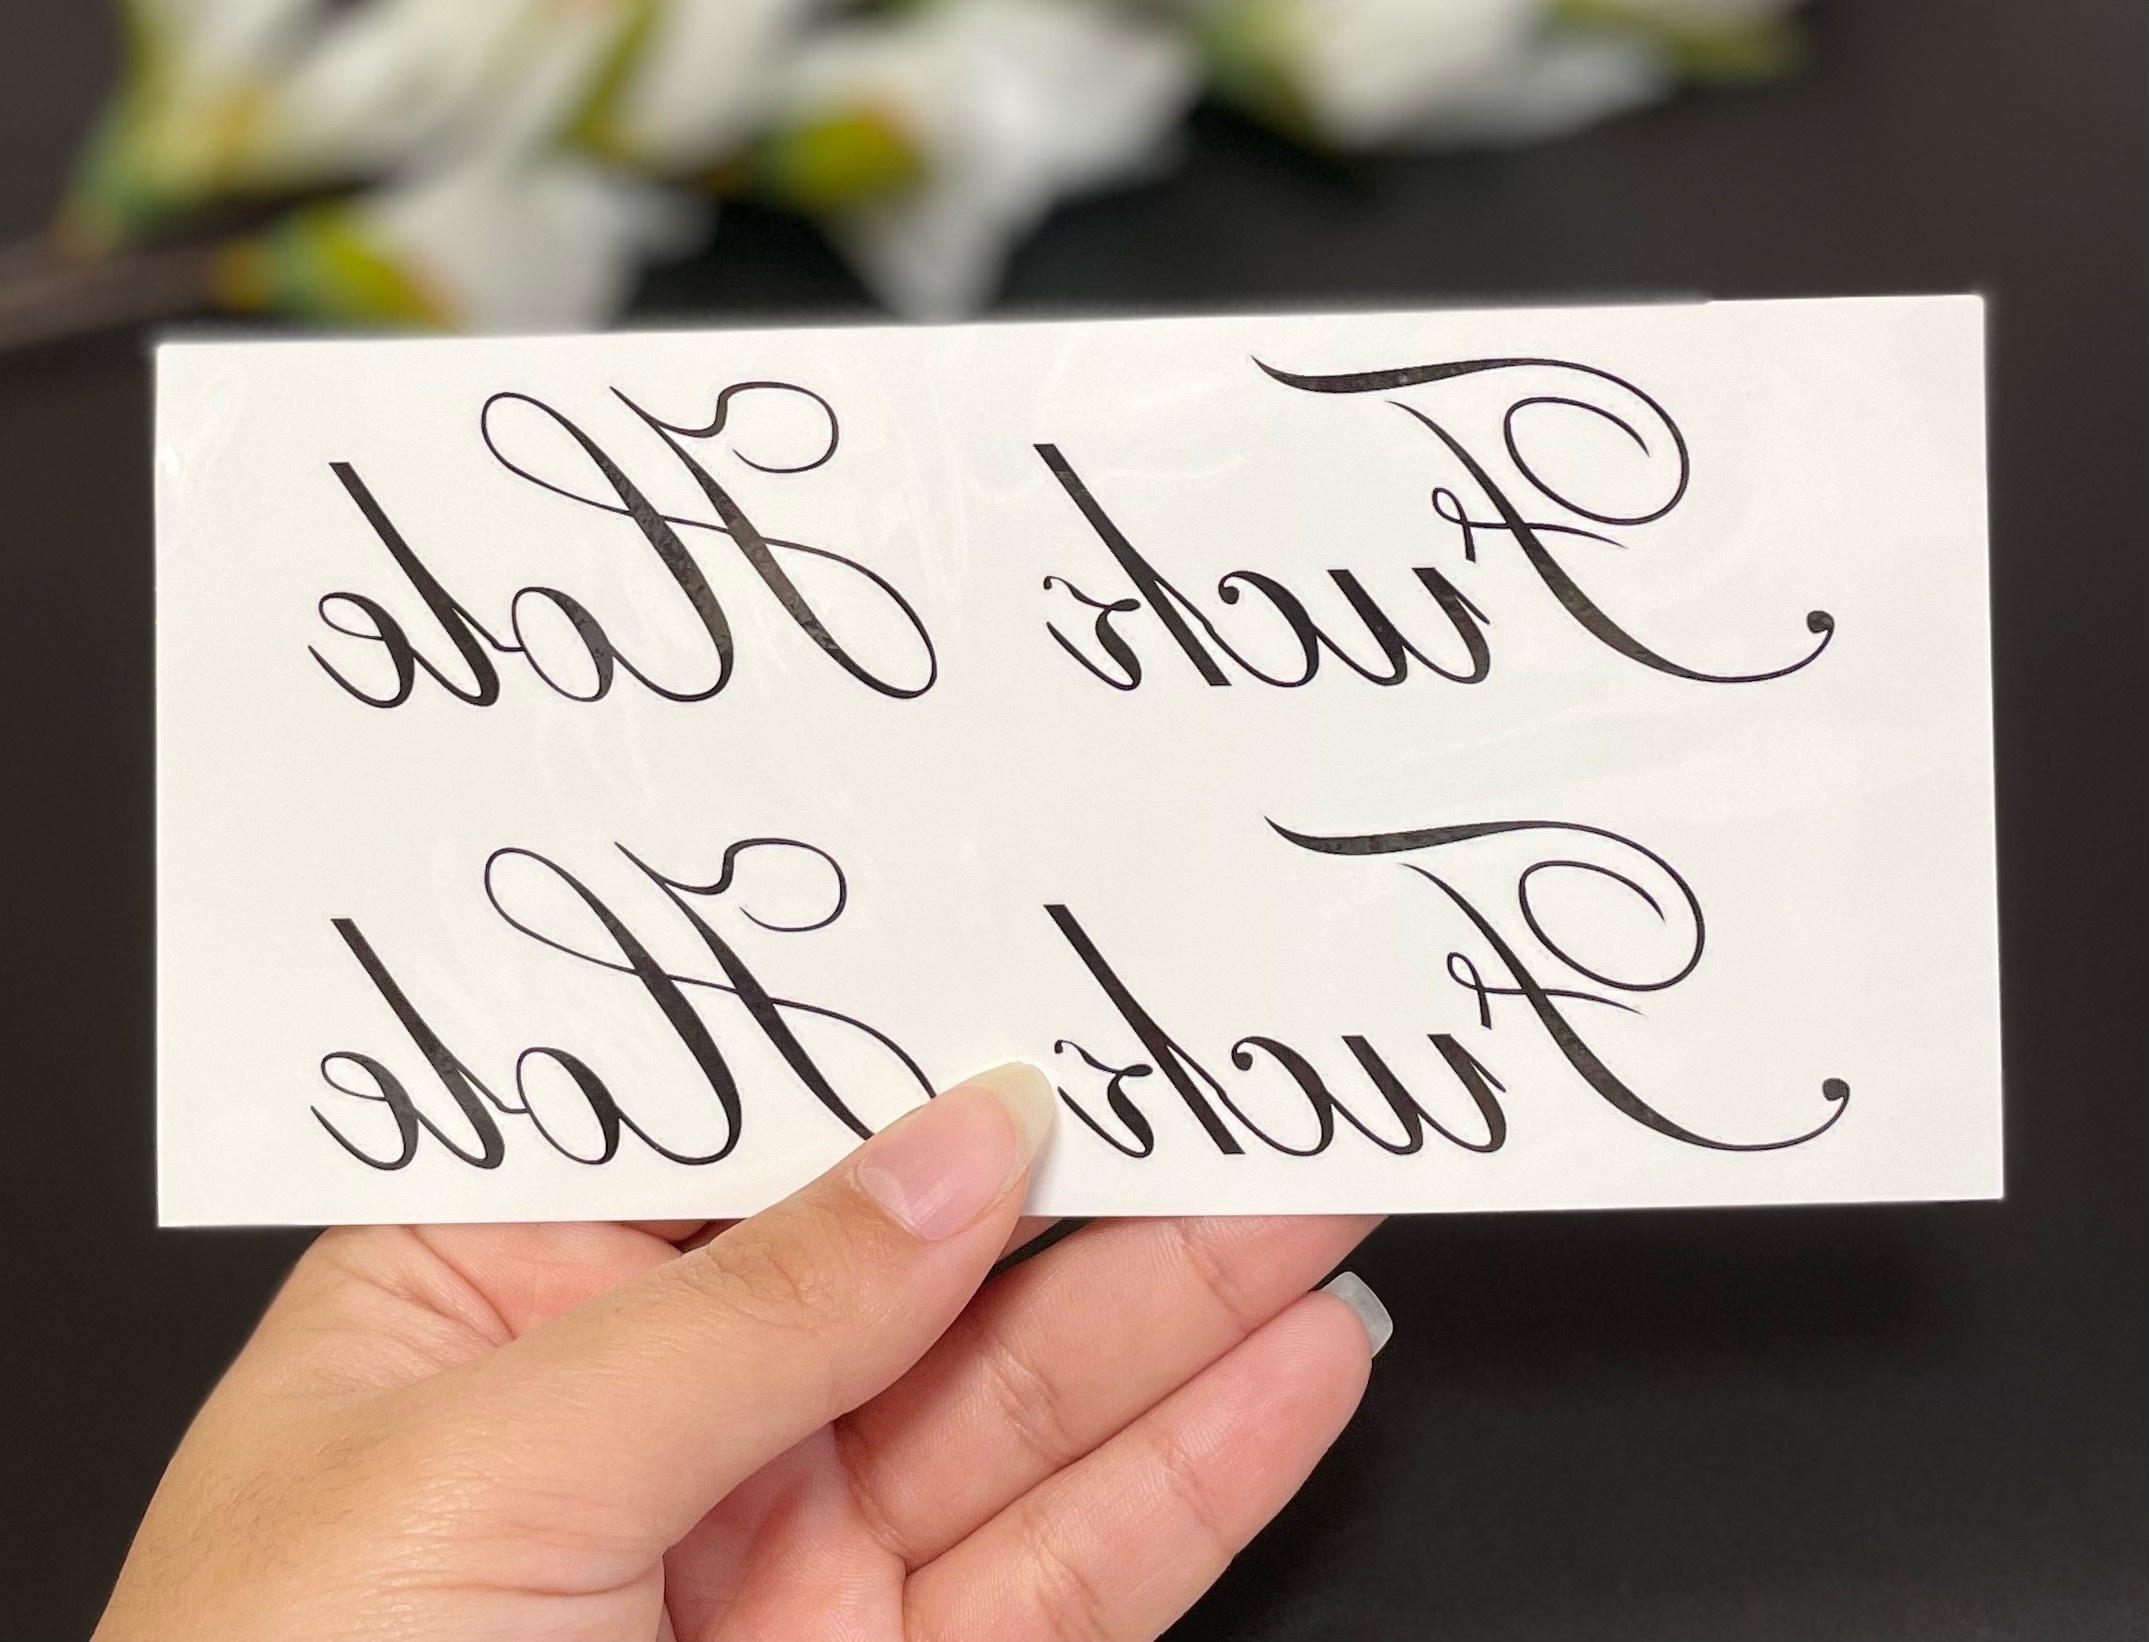 Fuck Hole
Fuck Hole